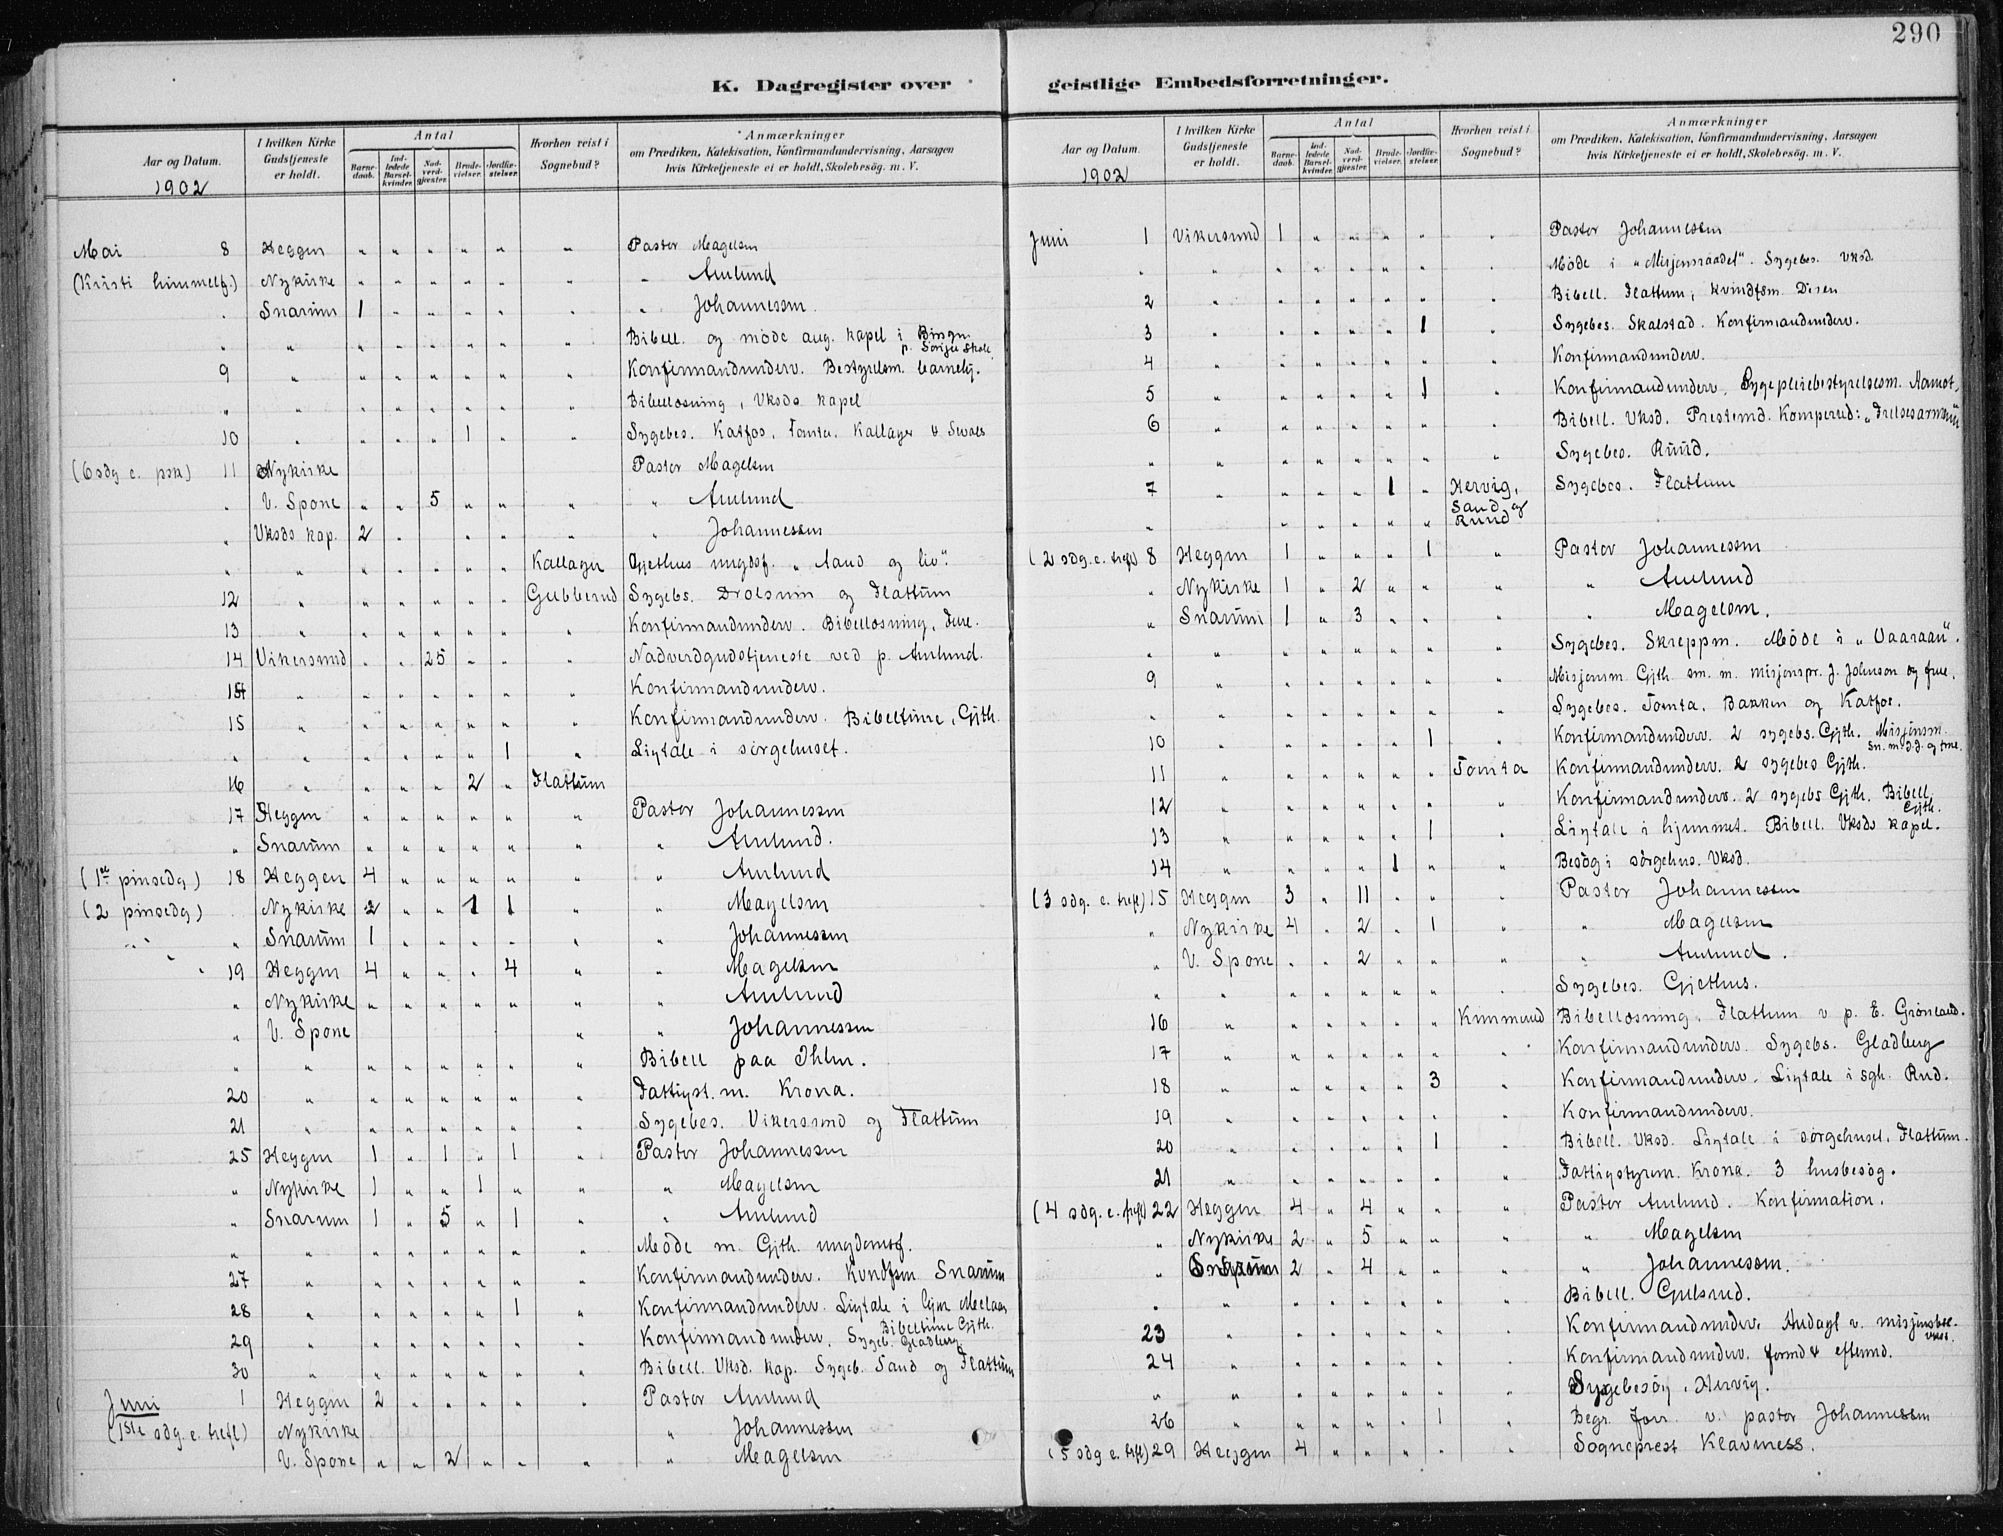 290
K. Dagregister over geistlige Embedsforretninger.
Aar og Datum.
1902
I hvilken Kirke Gudstjeneste er holdt.
Antal
Barnedaab.
Indledede Barselkvinder.
Nadverdgjester.
Brudevielser.
Jordfæstelser.
Hvorhen reist i Sognebud?
Anmærkninger
om Prædiken, Katekisation, Konfirmandundervisning, Aarsagen
hvis Kirketjeneste ei er holdt, Skolebesög. m. V.
Mai 8 Heggen " " " " " " Pastor Magelsen
(Kristi himmelf.) Nykirke " " " " " " " Amlund
" Snarum 1 " " " " " " Johannessen.
" " " " " " " " Bibell. og möde ang. kapel i Bingen p. Sörgee Skole
9 " " " " " " " Konfirmandunderv. Bestyrelsm. barnehj.
" " " " " " " " Bibellæsning, Vksds kapel
10 " " " " 1 " " Sygebes. Katfos, Tomta, Kallager &
(6 sdg e. psk) 11 Nykirke Pastor Magelsen
" V. Spone " " 5 " " " " Amlund
" Vksds kap. 2 " " " " " Johannessen
" " " " " " " Kallager Gjethus ungdsf. "Aand og liv".
12 " " " " " " Gubberud Sygebs. Drolsum og Flattum
13 " " " " " " " Konfirmandunderv. Bibellæsning, Fure.
14 Vikersund " " 25 " " " Nadverdgudstjeneste ved p. Amlund.
14 " " " " " " " Konfirmandunderv.
15 " " " " " " " Konfirmandunderv. Bibeltime, Gjth.
" " " " " " 1 " Ligtale i sörgehuset.
16 " " " " 2 " Flattum
17 Heggen " " " " " " Pastor Johannessen
" Snarum " " " " " " " Amlund.
(1ste pinsedg) 18 Heggen 4 " " " " " " Amlund
(2 pinsedg) Nykirke 2 " " 1 1 " " Magelsen
" " " Snarum 1 " " " " " " Johannessen
" " 19 Heggen 4 " " " 4 " " Magelsen
" Nykirke " " " " " " " Amlund
" V. Spone " " Johannessen
" " " " " " " " Bibell paa Ihlen.
20 " " " " " " " Fattigst. m. Krona.
21 " " " " " " " Sygebes. Vikersund og Flattum
25 Heggen 1 " 1 " 1 " Pastor Johannessen
" Nykirke 1 " " 1 " " " Magelsen
" Snarum 1 " 5 " 1 " " Amlund
" " " " " " " " Möde m. Gjth. ungdomsf.
27 " " " " " " " Konfirmandunderv. Kvindfsm Snarum
28 " " " " " 1 " Konfirmandunderv. Ligtale i hjm Melaas
29 " " " " " " " Konfirmandunderv. Sygeb. Gladberg Bibeltime Gjth.
30 " " " " " " " Bibell. Vksd. kap. Sygeb. Sand og Flattum
Juni 1 Heggen 2 " " " " " Pastor Amlund
(1ste sdg. e. trefl) Nykirke " Johannessen
V. Spone " " 2 " " " " Magelsen
Aar og Datum.
1902
I hvilken Kirke Gudstjeneste er holdt.
Antal
Barnedaab.
Indledede Barselkvinder.
Nadverdgjester.
Brudevielser.
Jordfæstelser.
Hvorhen reist i Sognebud?
Anmærkninger
om Prædiken, Katekisation, Konfirmandundervisning, Aarsagen
hvis Kirketjeneste ei er holdt, Skolebesög. m. V.
Juni 1 Vikersund 1 " " " " " Pastor Johannessen
" " " " " " " " Möde i "Misjonsraadet". Sygebes. Vksd.
2 " " " " " " " Bibell. Flattum, Kvindfsm. Disen
3 " " " " " 1 " Sygebes. Skalstad. Konfirmandunderv.
4 " " " " " " " Konfirmandunderv.
5 " " " " " 1 " Konfirmandunderv. Sygepleiebestyrelsesm. Aamot,
6 " " " " " " " Bibell. Vksd. Prestemd. Komperud: "Frelsesarmeen"
" " " " " " " " Sygebes. Ruud.
7 " " " " 1 " Hervig, Sand og Ruud Sygebes. Flattum
(2 sdg. e. trefl) 8 Heggen 1 " " " 1 " Pastor Johannessen
" Nykirke 1 " 2 " " " " Amlund
" Snarum 1 " 3 " " " " Magelsen.
" " " " " " " " Sygebes. Skreppen. Möde i "Vaaraan".
9 " " " " " " " Misjonsm Gjth sm. m. misjonspr. J. Johnson og frue.
" " " " " " " " Sygebes. Tomta, Bakken og Katfos.
10 " " " " " 1 " Konfirmandunderv. 2 sygebs. Gjth. Misjonsm. Sn. m. J.J. og frue.
11 " " " " " " Tomta Konfirmandunderv. 2 sygebes Gjth.
12 " " " " " " " Konfirmandunderv. 2 sygebs Gjth. Bibell. Gjth.
13 " " " " " 1 " Ligtale i hjemmet. Bibell. Vksds kapel.
14 " " " " 1 " " Besög i sörgehus. Vksd.
(3 sdg. e. trefl) 15 Heggen 3 " 11 " " " Pastor Johannessen
" Nykirke 4 " 2 " 1 " " Magelsen
" V. Spone " " 2 " " " " Amlund.
" " " " " " " " Sygebes. Gjethus.
16 " " " " " " Kimmerud Bibellæsning, Flattum v p. E. Grönland.
17 " " " " " " " Konfirmandunderv. Sygebs. Gladberg
18 " " " " " 3 " Konfirmandunderv. Ligtale i sgh. Rud.
19 " " " " " " " Konfirmandunderv.
20 " " " " " 1 " Bibell. Vksd. Ligtale i sörgehuset, Flattum.
21 " " " " " " " Fattigstyrem. Krona. 3 husbesög.
(4 sdg. e. trefl) 22 Heggen 4 " 4 " " " Pastor Amlund. Konfirmation.
" Nykirke 2 " 5 " " " " Magelsen
" Snarum 2 " 4 " " " " Johannessen.
" " " " " " " " Bibell. Gulsrud.
23 " " " " " " " Konfirmandunderv. Andagt v. misjonsbes. Vksd.
24 " " " " " " " Konfirmandunderv. formd & eftermd.
" " " " " " " " Sygebesög, Hervig.
26 " " " " " 1 " Begr. forr. v. pastor Johannessen
(5 sdg e. trefl) 29 Heggen 4 " " " " " Sogneprest Klavness.